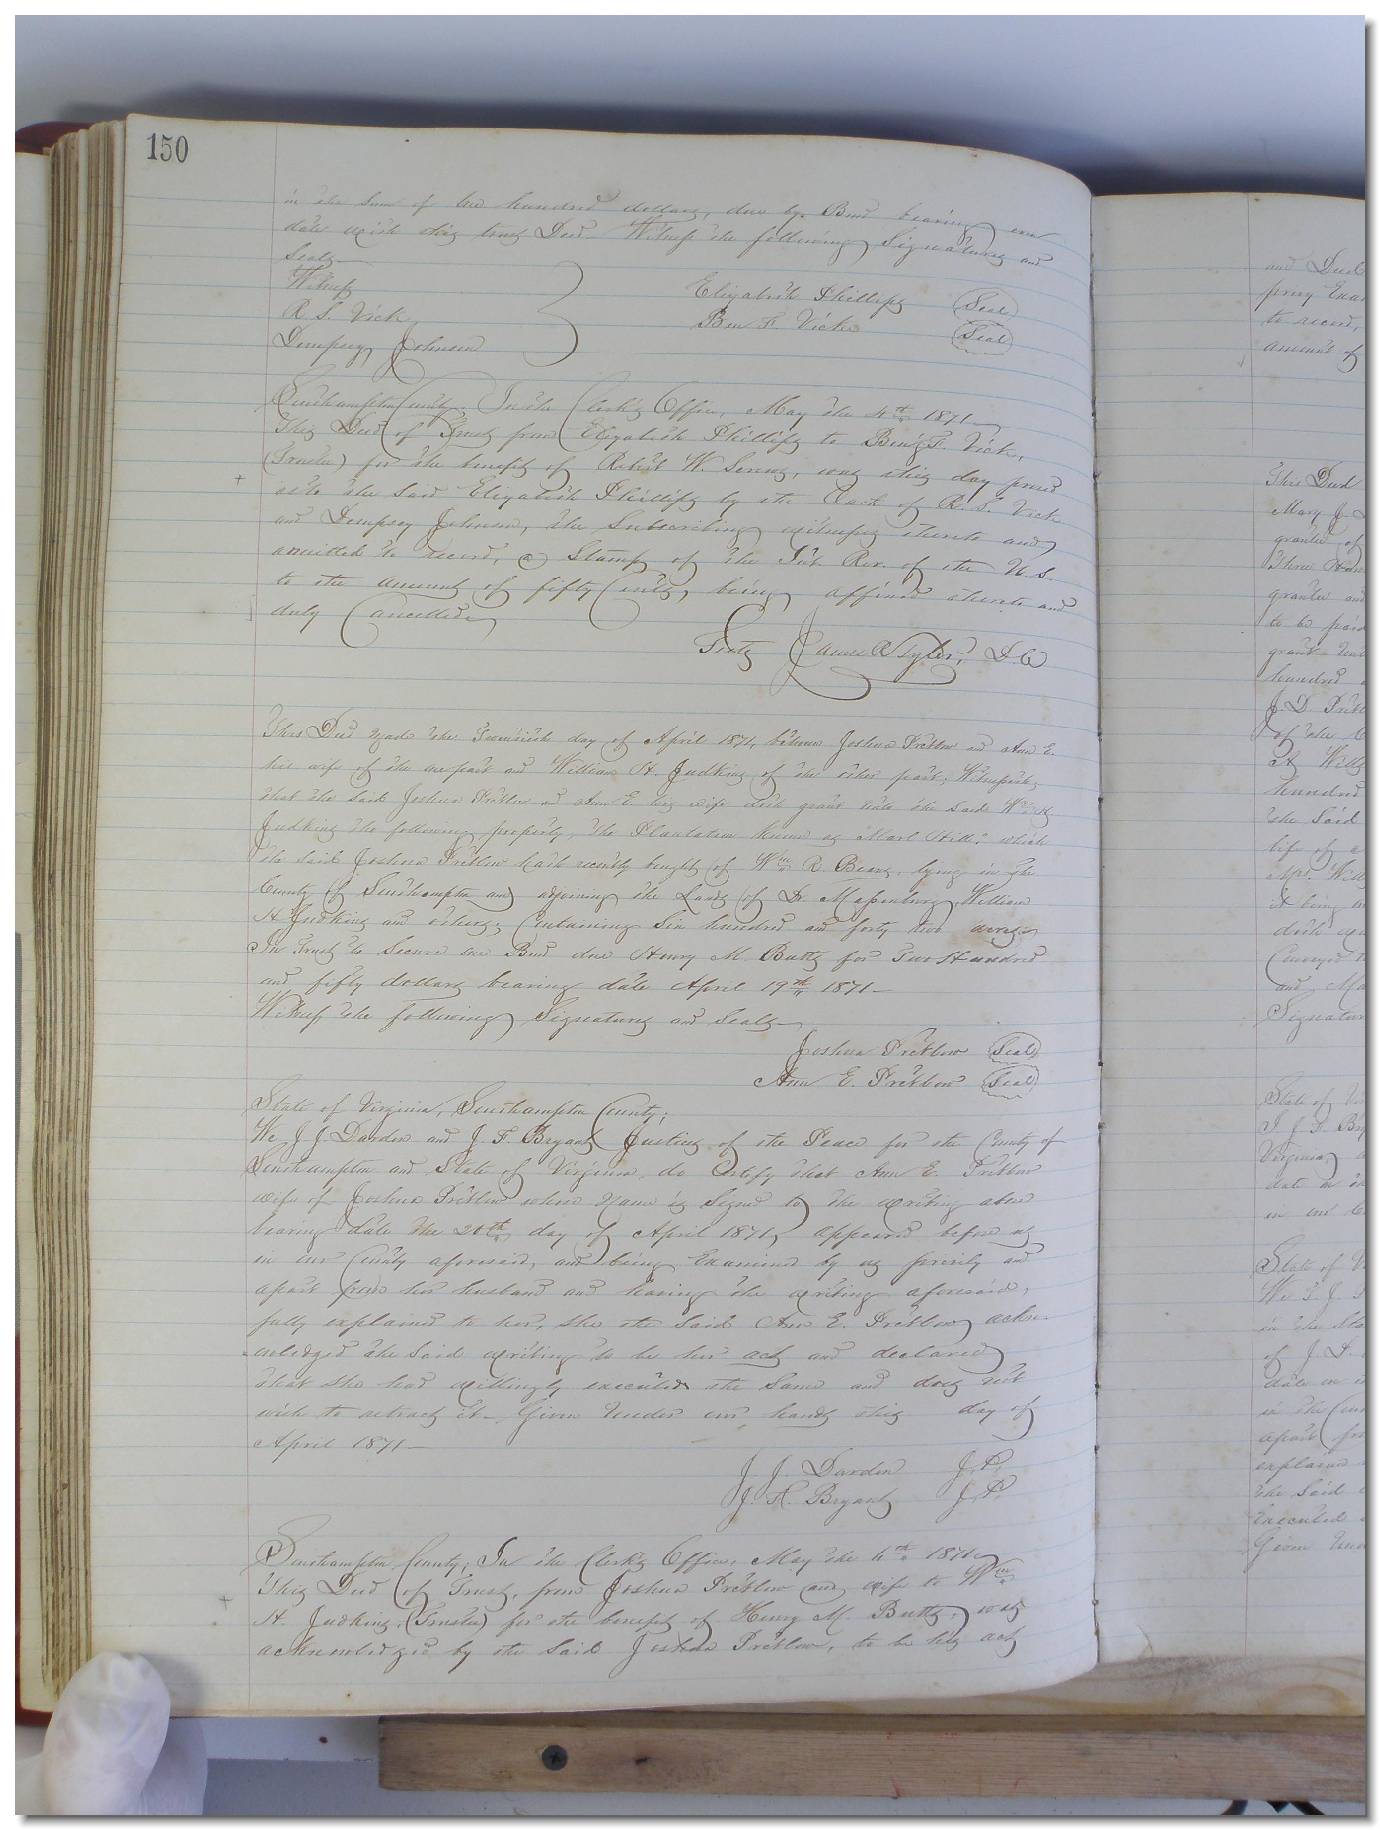 150
in the Sum of two hundred dollars, due by Bond bearing even
date with this trust Deed. Witness the following Signatures and
Seals
Witness
R. S. Vick
Dempsey Johnson
Elizabeth Phillips (Seal)
Ben F. Vicks (Seal)
Southampton County. In the Clerk's Office, May the 4th 1871
This Deed of Trust from Elizabeth Phillips to Benj. F. Vick,
(Trustee) for the benefit of Robert W. was this day proved
as to the Said Elizabeth Phillips by the Oath of R. S. Vick
and Dempsey Johnson, the Subscribing witnesses thereto and
admitted to record, a Stamp of the Int. Rev. of the U. S.
to the amount of fifty Cents, being affixed thereto and
duly Cancelled
Teste James R Tyler, D. C
This Deed made the Twentieth day of April 1871, between Joshua Pretlow and Ann E.
his wife of the one part and William H. Judkins of the other part; Witnesseth;
that the Said Joshua Pretlow and Ann E his wife doth grant unto the Said Wm. H.
Judkins the following property, the Plantation known as "Marl Hill" which
the Said Joshua Pretlow hath recently bought of Wm. R. Beans, lying in the
County of Southampton and adjoining the Lands of Dr. Massenburg, William
H. Judkins and others, Containing Six hundred and forty two acres
In Trust to Secure one Bond due Henry M. Butts for Two Hundred
and fifty dollars bearing date April 19th 1871
Witness the following Signatures and Seals
Joshua Pretlow (Seal)
Ann E. Pretlow (Seal)
State of Virginia, Southampton County;
We J. J. Darden and J. F. Bryant Justices of the Peace for the County of
Southampton and State of Virginia, do Certify that Ann E. Pretlow
wife of Joshua Pretlow whose Name is Signed to the writing above
bearing date the 20th day of April 1871, appeared before us
in our County aforesaid, and being Examined by us privily and
apart from her husband and having the writing aforesaid,
fully explained to her, She the Said Ann E. Pretlow ackno-
wledged the Said writing to be her act and declared
that She had willingly executed the Same and does not
wish to retract it. Given Under our hands this day of
April 1871
J. J. Darden J. P.
J. F. Bryant J. P.
Southampton County; In the Clerk's Office, May the 4th 1871
This Deed of Trust, from Joshua Pretlow and wife to Wm.
H. Judkins, (Trustee) for the benefit of Henry M. Butts, was
acknowledged by the Said Joshua Pretlow, to be his act
and Deed
to record,
amount of
This Deed
Mary J.
grantee of
Three
grantee and
to be paid
grant
hundred
of the
hundred
the Said
life of a
Mrs.
it being
doth
Conveyed
and
Signatur
State of
Virginia
date
in our
State of
We
in the
of J. D.
date
in the
apart
explained
the Said
Executed
Given Und